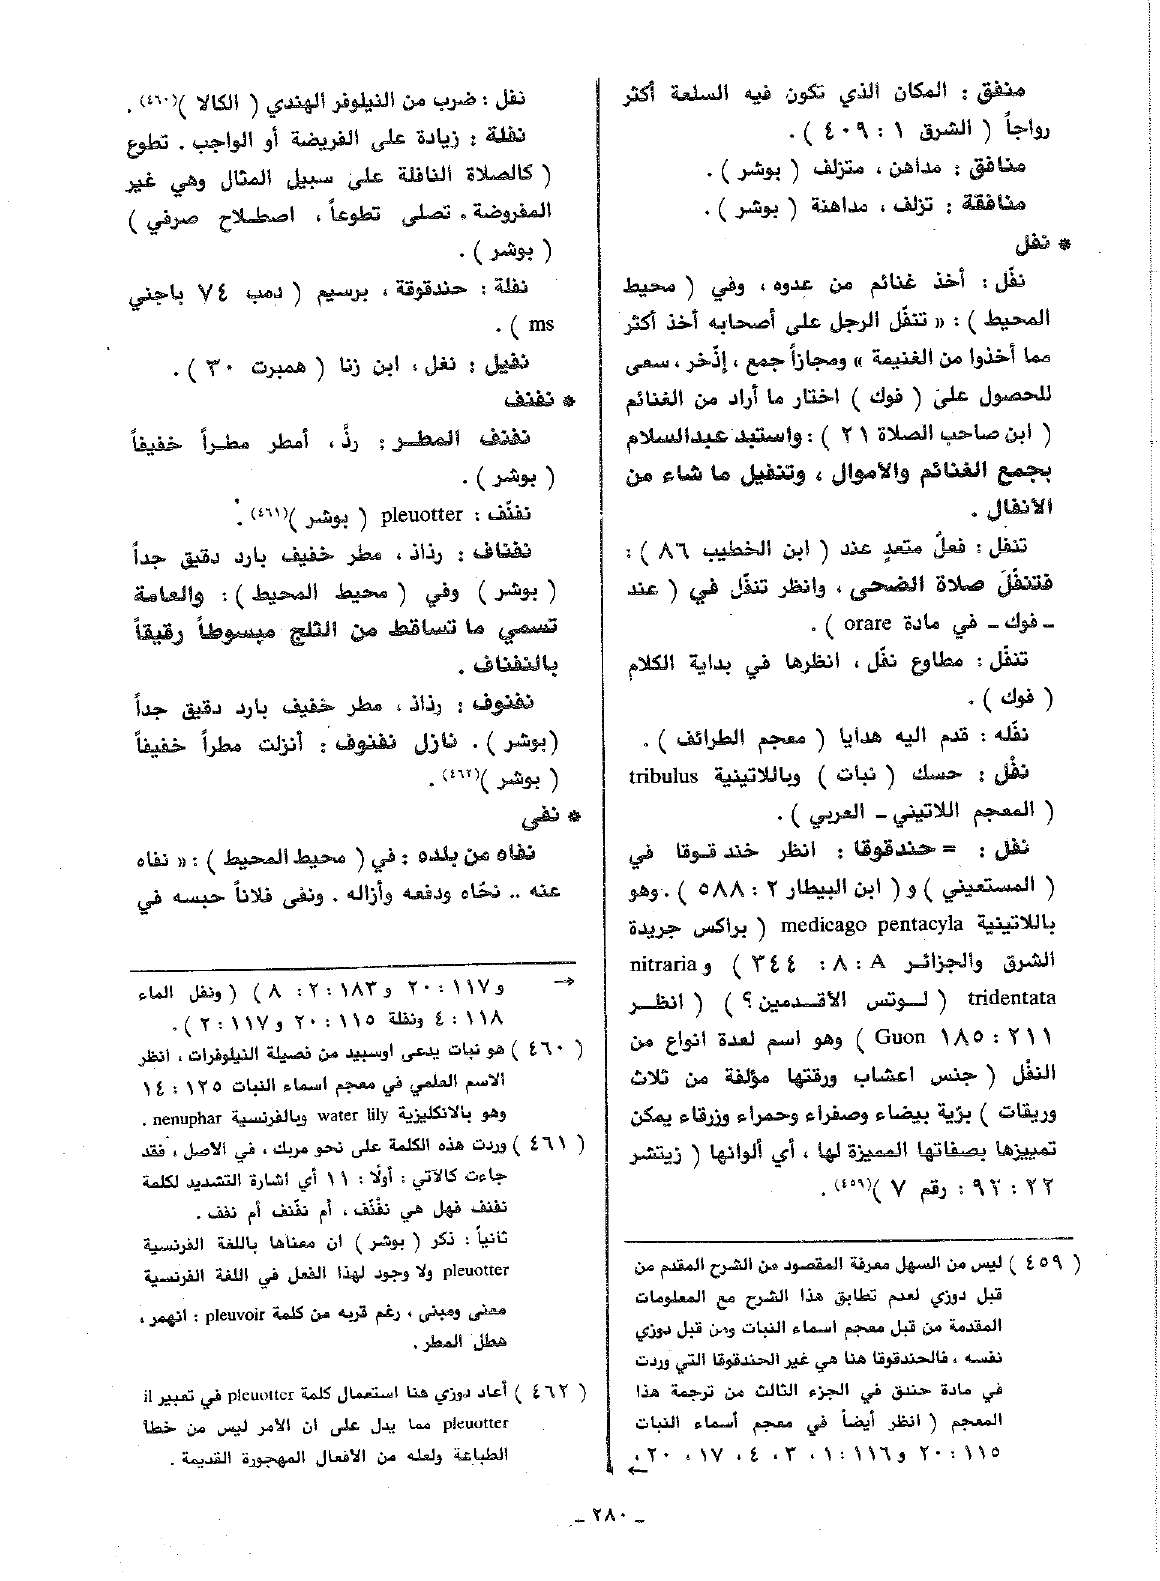 منفق : المكان الذي تكون فيه السلعة أكثر
رواجاً ( الشرق ١ : ٤٠٩ ) .
منافق : مداهن ، متزلف ( بوشر ) .
منافقة : تزلف ، مداهنة ( بوشر ) .
* نفل
نفّل : أخذ غنائم من عدوه ، وفي ( محيط
المحيط ) : « تنفّل الرجل على أصحابه أخذ أكثر
مما أخذوا من الغنيمة » ومجازاً جمع ، إذّخر ، سعى
للحصول على ( فوك ) اختار ما أراد من الغنائم
( ابن صاحب الصلاة ٢١ ) : واستبد عبدالسلام
بجمع الغنائم والأموال ، وتنفيل ما شاء من
الأنفال .
تنفل : فعلٌ متعدٍ عند ( ابن الخطيب ٨٦ ) :
فتنفّلَ صلاة الضحى ، وانظر تنفّل في ( عند
ـ فوك ـ في مادة orare ) .
تنفّل : مطاوع نفّل ، انظرها في بداية الكلام
( فوك ) .
نفّله : قدم اليه هدايا ( معجم الطرائف ) .
نفْل : حسك ( نبات ) وباللاتينية tribulus
( المعجم اللاتيني ـ العربي ) .
نفل : = حندقوقا : انظر خندقوقا في
( المستعيني ) و ( ابن البيطار ٢ : ٥٨٨ ) . وهو
باللاتينية medicago pentacyla ( براكس جريدة
الشرق والجزائر ٨ : A : ٣٤٤ ) و nitraria
tridentata ( لوتس الأقدمين ؟ ) ( انظر
٢١١ : ١٨٥ Guon ) وهو اسم لعدة انواع من
النفْل ( جنس اعشاب ورقتها مؤلفة من ثلاث
وريقات ) برّية بيضاء وصفراء وحمراء وزرقاء يمكن
تمييزها بصفاتها المميزة لها ، أي ألوانها ( زيتشر
٢٢ : ٩٢ : رقم ٧ )(٤٥٩) .
( ٤٥٩ ) ليس من السهل معرفة المقصود من الشرح المقدم من
قبل دوزي لعدم تطابق هذا الشرح مع المعلومات
المقدمة من قبل معجم اسماء النبات ومن قبل دوزي
نفسه ، فالحندقوقا هنا هي غير الحندقوقا التي وردت
في مادة حندق في الجزء الثالث من ترجمة هذا
المعجم ( انظر أيضاً في معجم أسماء النبات
١١٥ : ٢٠ و ١١٦ : ١ ، ٣ ، ٤ ، ١٧ ، ٢٠ ،
←
نفل : ضرب من النيلوفر الهندي ( الكالا )(٤٦٠) .
نفلة : زيادة على الفريضة أو الواجب . تطوع
( كالصلاة النافلة على سبيل المثال وهي غير
المفروضة . تصلى تطوعاً ، اصطلاح صرفي )
( بوشر ) .
نفلة : حندقوقة ، برسيم ( دمب ٧٤ باجني
ms ) .
نفيل : نغل ، ابن زنا ( همبرت ٣٠ ) .
* نفنف
نفنف المطر : رذّ ، أمطر مطراً خفيفاً
( بوشر ) .
نفنّف : pleuotter ( بوشر )(٤٦١) .
نفناف : رذاذ ، مطر خفيف بارد دقيق جداً
( بوشر ) وفي ( محيط المحيط ) : والعامة
تسمي ما تساقط من الثلج مبسوطاً رقيقاً
بالنفناف .
نفنوف : رذاذ ، مطر خفيف بارد دقيق جداً
(بوشر ) . نازل نفنوف : أنزلت مطراً خفيفاً
( بوشر )(٤٦٢) .
* نفي
نفاه من بلده : في ( محيط المحيط ) : « نفاه
عنه .. نحّاه ودفعه وأزاله . ونفى فلاناً حبسه في
→ و ١١٧ : ٢٠ و ١٨٣ : ٢ : ٨ ) ( ونفل الماء
١١٨ : ٤ ونفلة ١١٥ : ٢٠ و ١١٧ : ٢ ) .
( ٤٦٠ ) هو نبات يدعى اوسبيد من فصيلة النيلوفرات ، انظر
الاسم العلمي في معجم اسماء النبات ١٢٥ : ١٤
وهو بالانكليزية water lily وبالفرنسية nenuphar .
( ٤٦١ ) وردت هذه الكلمة على نحو مربك ، في الاصل ، فقد
جاءت كالآتي : أولًا : ١١ أي اشارة التشديد لكلمة
نفنف فهل هي نفْنَف ، أم نفّنف أم نفف .
ثانياً : ذكر ( بوشر ) ان معناها باللغة الفرنسية
pleuotter ولا وجود لهذا الفعل في اللغة الفرنسية
معنى ومبنى ، رغم قربه من كلمة pleuvoir : انهمر ،
هطل المطر .
( ٤٦٢ ) أعاد دوزي هنا استعمال كلمة pleuotter في تعبير il
pleuotter مما يدل على ان الأمر ليس من خطأ
الطباعة ولعله من الأفعال المهجورة القديمة .
ـ ٢٨٠ ـ